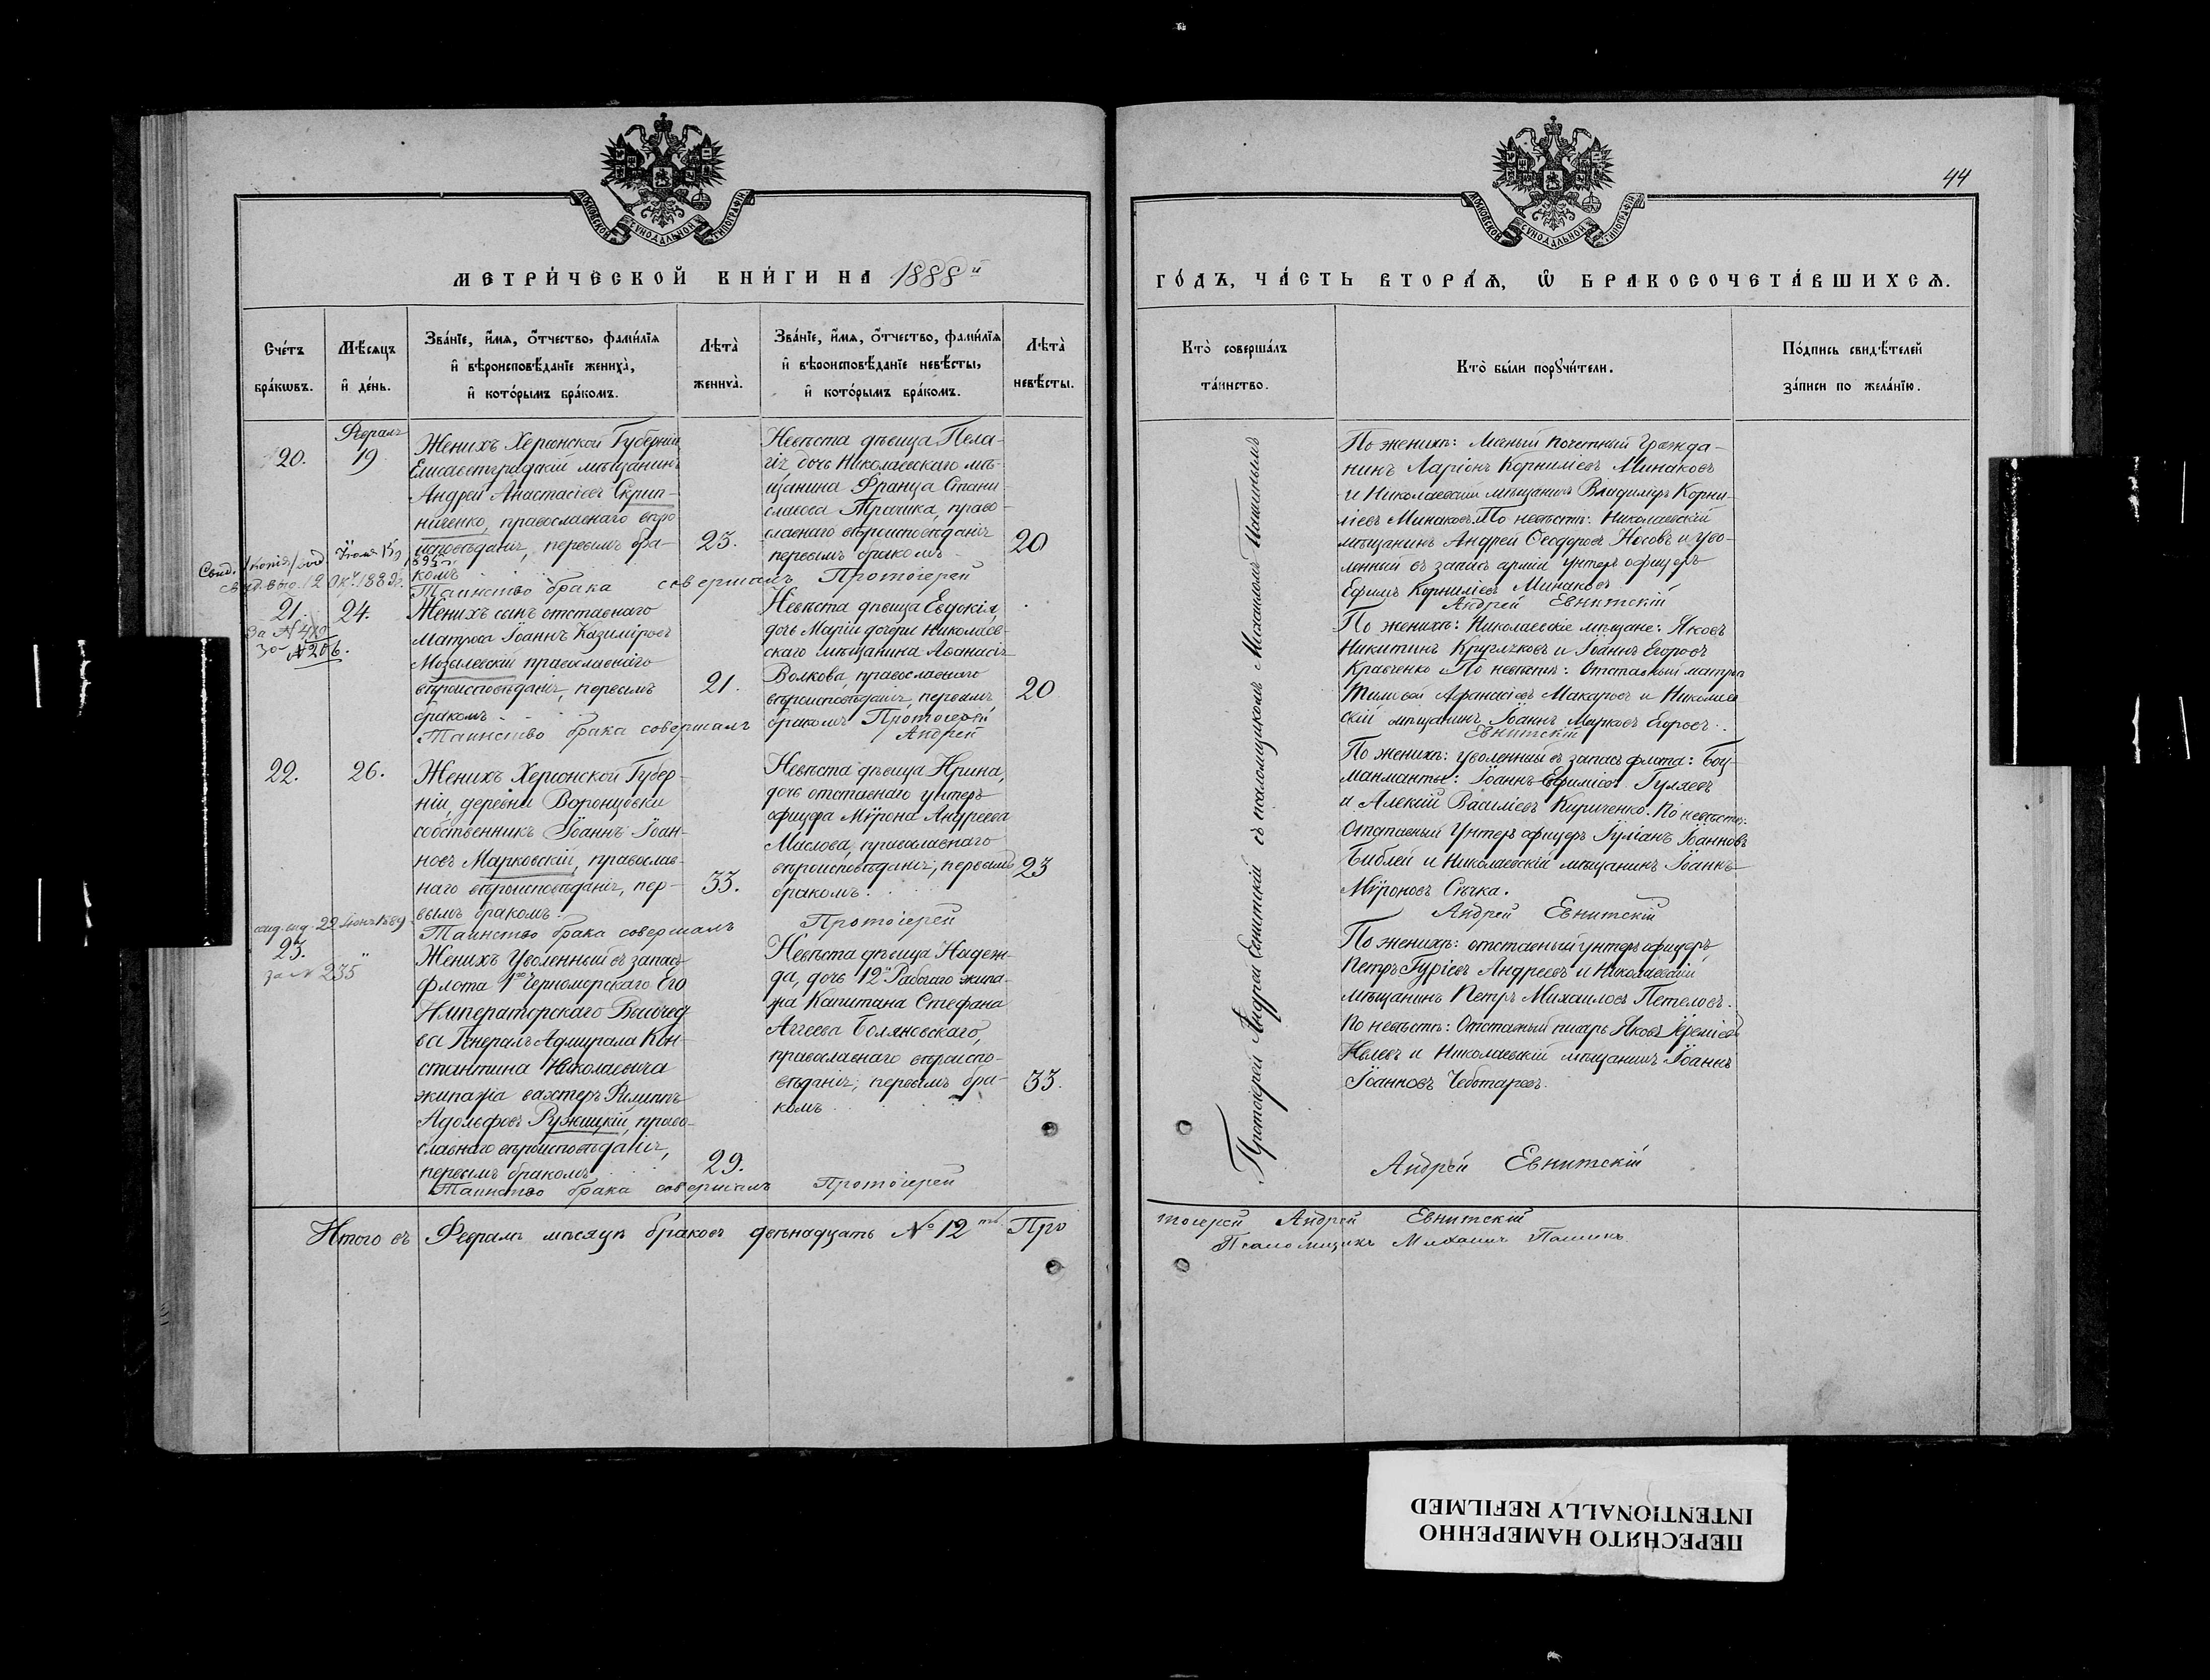 44
МОСКОВСКОЙ СѴНОДАЛЬНОЙ ТИПОГРАФІИ
МОСКОВСКОЙ СѴНОДАЛЬНОЙ ТИПОГРАФІИ
МЕТРИ́ЧЕСКОЙ КНИ́ГИ НА 1888й
Сче́тъ бра́кѡвъ.
Мѣ́сяцъ и҆ де́нь.
Зва́нїе, и҆́мѧ, ѻ҆́тчество, фами́лїѧ
и҆ вѣроисповѣ́данїе жениха̀,
и҆ кото́рымъ бра́комъ.
Лѣта̀ жениха̀.
Зва́нїе, и҆́мѧ, ѻ҆́тчество, фами́лїѧ
и҆ вѣроисповѣ́данїе невѣ́сты,
и҆ кото́рымъ бра́комъ.
Лѣта̀ невѣ́сты.
20.
Февраль
19
Женихъ Херсонской Губерніи
Елисаветградскій мѣщанинъ
Андрей Анастасіевъ Скрип-
ниченко, православнаго вѣро
исповѣданія, первымъ бра-
комъ
23.
Невѣста дѣвица Пела-
гія, дочь Николаевскаго мѣ-
щанина Франца Стани-
слаова православнаго вѣроисповѣданія
первымъ бракомъ
20
Таинство брака совершалъ Протоіерей
21.
24.
За № 206.
Женихъ сынъ отставнаго
матроса Іоаннъ Казиміровъ
Мозылевскій православнаго
вѣроисповѣданія, первымъ
бракомъ
21.
Невѣста дѣвица Евдокія,
дочь Маріи дочери Николаев-
скаго мѣщанина Аѳанасія
Волкова, православнаго
вѣроисповѣданія, первымъ
бракомъ
20
Таинство брака совершалъ Протоіерей
Андрей
22.
26.
Женихъ Херсонской Губер-
ніи деревни Воронцовки
собственникъ Іоаннъ Іоан-
новъ Марковскій, православ-
наго вѣроисповѣданія, пер-
вымъ бракомъ.
33.
Невѣста дѣвица Ирина,
дочь отставнаго унтеръ
офицера Мѵрона Андреева
Маслова, православнаго
вѣроисповѣданія, первымъ
бракомъ.
23
Таинство брака совершалъ Протоіерей
23.
за № 235
"
Женихъ Уволенный въ запасъ
флота 1го Черноморскаго Его
Императорскаго Высочест
ва Генералъ Адмирала Кон-
стантина Николаевича
экипажа вахтеръ Филиппъ
Адольфовъ Ружицкій, право-
славнаго вѣроисповѣданія,
первымъ бракомъ
29.
Невѣста дѣвица Надеж-
да, дочь 12го Рабочаго экипа-
жа Капитана Стефана
Аггеева Боляновскаго,
православнаго вѣроиспо-
вѣданія, первымъ бра-
комъ
33.
Таинство брака совершалъ Протоіерей
Итого въ Февралѣ мѣсяцѣ браковъ двѣнадцать № 12ть Про
ГО́ДЪ, ЧА́СТЬ ВТОРА́Ѧ, Ѽ БРАКОСОЧЕТА́ВШИХСѦ.
Кто̀ соверша́лъ
та́инство.
Кто̀ бы́ли порꙋчи́тели.
По́дпись свидѣ́телей
за́писи по жела́нїю.
Протоіерей Андрей Евнитскій съ псаломщикомъ Михаиломъ
По женихѣ: Личный почетный Гражда-
нинъ Ларіонъ Корниліевъ Минаковъ
и Николаевскій мѣщанинъ Владиміръ Корни-
ліевъ Минаковъ. По невѣстѣ: Николаевскій
мѣщанинъ Андрей Ѳеодоровъ Носовъ и уво-
ленный въ запасъ арміи унтеръ офицеръ
Ефимъ Корниліевъ Минаковъ
Андрей Евнитскій
По женихѣ: Николаевскіе мѣщане: Яковъ
Никитинъ Кругляковъ и Іоаннъ Егоровъ
Кравченко По невѣстѣ: Отставный матросъ
Тимоѳей Афанасіевъ Макаровъ и Николаев
скій мѣщанинъ Іоаннъ Марковъ Егоровъ.
Евнитскій
По женихѣ: уволенные въ запасъ флота: Боц-
манматы: Іоаннъ Ефиміевъ Гуляевъ
и Алексій Василіевъ Кириченко. По невѣстѣ:
Отставный Унтеръ офицеръ Іуліанъ Іоанновъ
Библей и Николаевскій мѣщанинъ Іоаннъ
Мѵроновъ Сѣчка.
Андрей Евнитскій
По женихѣ: отставный унтеръ офицеръ
Петръ Гуріевъ Андреевъ и Николаевскій
мѣщанинъ Петръ Михаиловъ Петеловъ.
По невѣстѣ: Отставный писарь Яковъ Іереміевъ
Ивлевъ и Николаевскій мѣщанинъ Іоаннъ
Іоанновъ Чеботаревъ.
Андрей Евнитскій
тоіерей Андрей Евнитскій
Псаломщикъ Михаилъ
ПЕРЕСНЯТО НАМЕРЕННО
INTENTIONALLY REFILMED